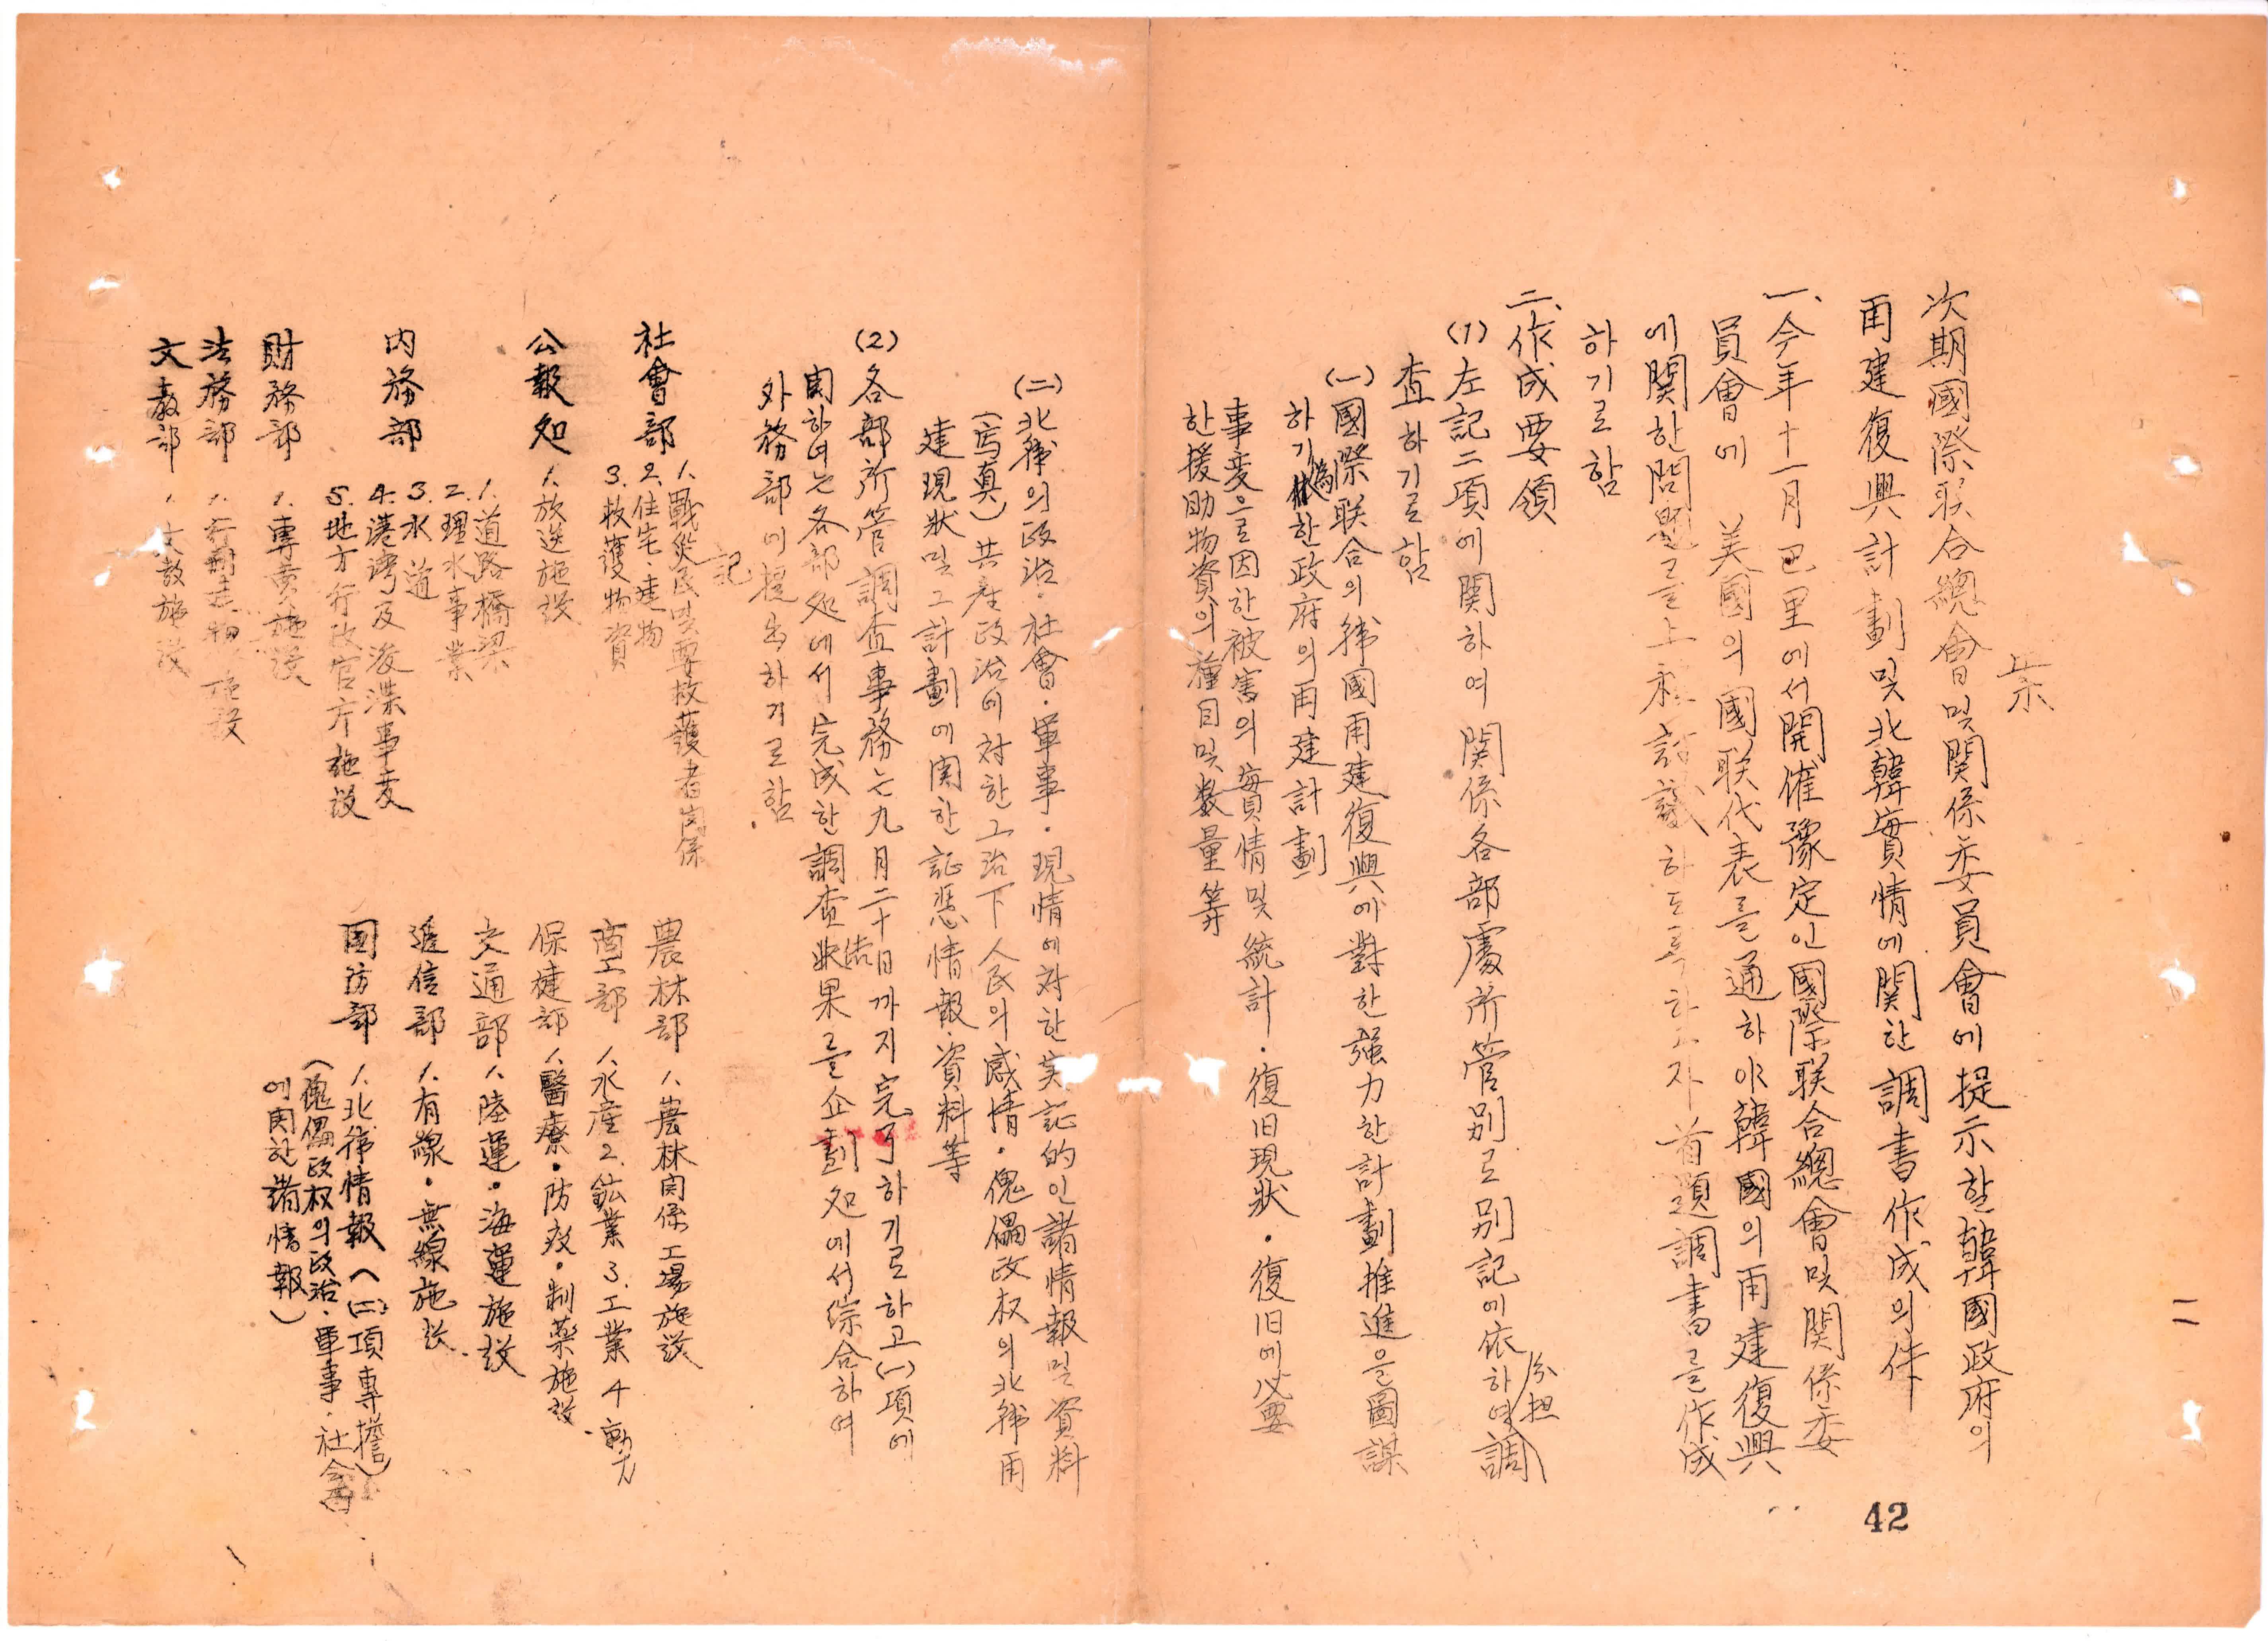 次期國際联合總會및関係委員會에提示할韓國政府의
再建復興計劃및北韓實情에関한調書作成의件
一、今年十一月巴里에서開催豫定인國際联合總會및関係委
員會에 美國의國联代表를通하야韓國의再建復興
에関한問題를上程討議하도록하고자首題調書를作成
하기로함
二、作成要領
(1)左記二項에関하여関係各部處所管別로別記에依하여分担調
査하기로함
(一)國際联合의韓國再建復興에對한强力한計劃推進을圖謀
하기爲한政府의再建計劃
事変으로因한被害의實情및統計・復旧現狀・復旧에必要
한援助物資의種目및数量等
(二)北韓의政治・社會・軍事・現情에対한実証的인諸情報및資料
(写真)共産政治에対한그治下人民의感情・傀儡政权의北韓再
建現狀및그計劃에関한証憑情報・資料等
(2)各部所管調査事務는九月二十日까지完了하기로하고(一)項에
関하여는各部処에서完成한調査結果를企劃処에서综合하여
外務部에提出하기로함.
記
社會部 1.戰災民및要救護者関係
2.住宅・建物
3.救護物資
公報処 1.放送施設
內務部 1.道路橋梁
2.理水事業
3.水道
4.港湾及浚渫事業
5.地方行政官庁施設
財務部 1.專賣施設
法務部 1.行刑建物施設
文教部 1.文教施設
農林部 1.農林関係工場施設
商工部 1.水産2.鉱業3.工業4動力
保健部 1.醫療・防疫・制藥施設
交通部 1.陸運・海運施設
逓信部 1.有線・無線施設
國防部 1.北韓情報(二)項專擔)
(傀儡政权의政治・軍事・社會
에関한諸情報)
二
42